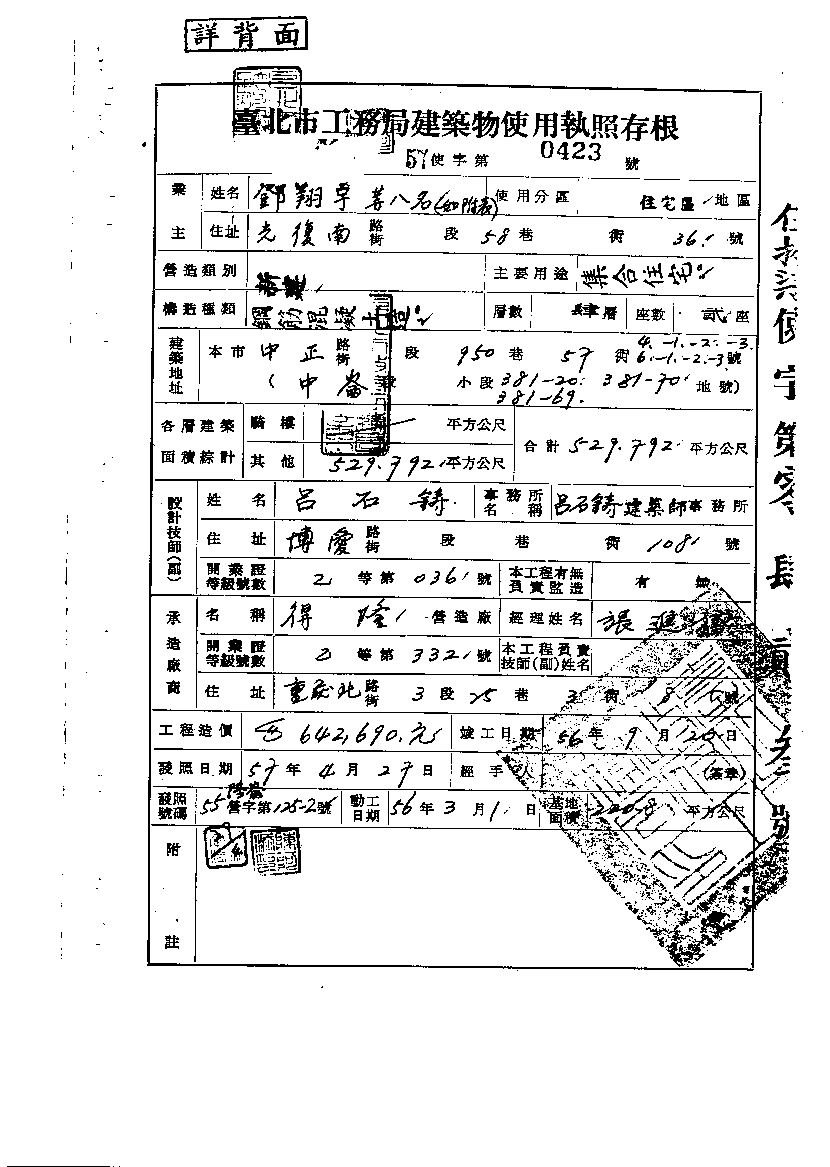 詳背面
臺北市工務局建築物使用執照存根
57使字第 0423 號
業主 姓名 鄧翔 等八名(如附表) 使用分區 住宅區 地區
住址 光復南 路街 段 58 巷 街 36 號
營造類別 新建 主要用途 集合住宅
構造種類 鋼筋混凝土造 層數 肆層 座數 貳座
建築地址 本市 中正 路街 段 950 巷 57 街 4.-1.-2.-3. 6.-1.-2.-3號
(中崙 段 小段 381-20. 381-70 地號)
381-69.
各層建築面積綜計 騎樓 平方公尺 合計 529.792 平方公尺
其他 529.792 平方公尺
設計技師(副) 姓名 呂石鑄 事務所名稱 呂石鑄建築師事務所
住址 博愛 路街 段 巷 街 108 號
開業證等級號數 乙 等第 036 號 本工程有無負責監造 有 無
承造廠商 名稱 得隆 營造廠 經理姓名 張進
開業證等級號數 乙 等第 332 號 本工程負責技師(副)姓名
住址 重慶北 路街 3 段 25 巷 3 街 8 號
工程造價 642,690.元 竣工日期 56年 9 月 20 日
發照日期 57 年 4 月 27 日 經手人 (蓋章)
發照號碼 55 營字第125-2號 動工日期 56年 3 月 1 日 基地面積 平方公尺
附註
使字第零肆貳參號